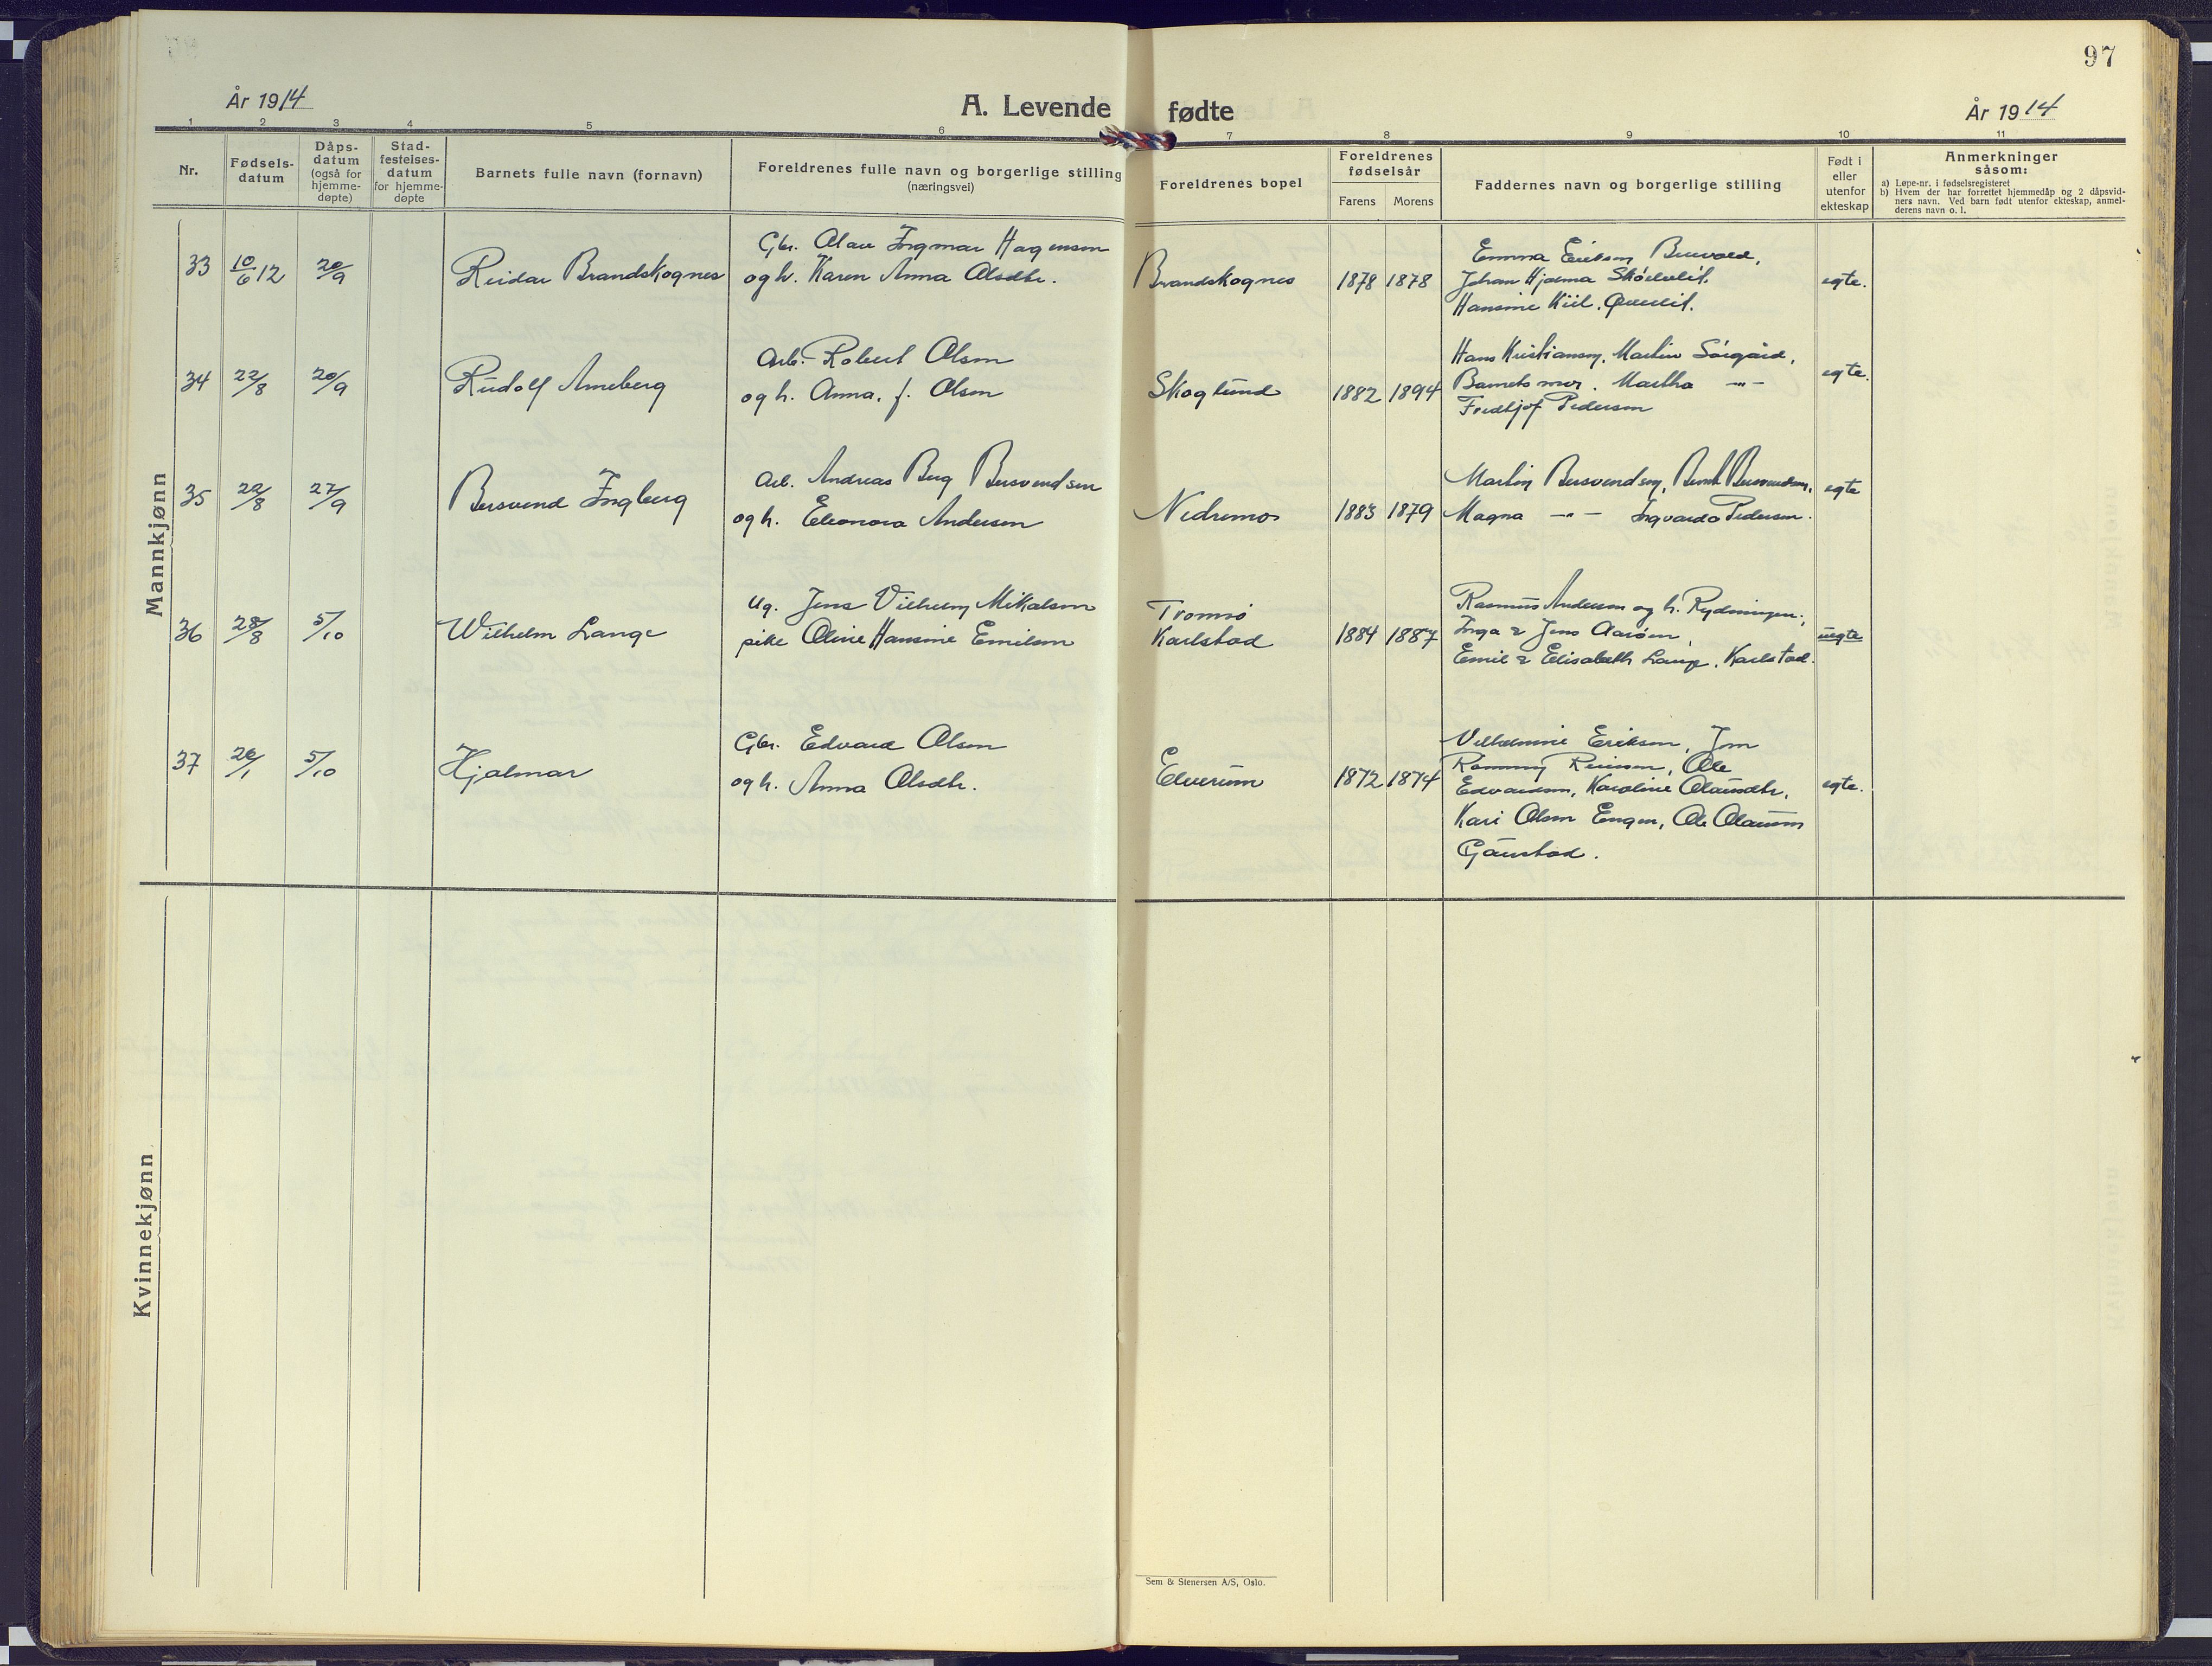 97
År 1914
A. Levende fødte
År 1914
1 2 3 4 5 6 7 8 9 10 11
Nr.
Fødsels-
datum
Dåps-
datum
(også for
hjemme-
døpte)
Stad-
festelses-
datum
for hjemme-
døpte
Barnets fulle navn (fornavn)
Foreldrenes fulle navn og borgerlige stilling
(næringsvei)
Foreldrenes bopel
Foreldrenes
fødselsår
Farens Morens
Faddernes navn og borgerlige stilling
Født i
eller
utenfor
ekteskap
Anmerkninger
såsom:
a) Løpe-nr. i fødselsregisteret
b) Hvem der har forrettet hjemmedåp og 2 dåpsvid-
ners navn. Ved barn født utenfor ekteskap, anmel-
derens navn o. l.
Mannkjønn
33 10/6 12 20/9 Reidar Brandskognes
Gbr. Olav Ingmar Hagensen
og h. Karen Anna Olsdtr.
Brandskognes 1878 1878
Emma Eriksen
Johan Hjalmar
Hansine Kiil.
egte.
34 22/8 20/9 Rudolf Arneberg
Arb. Robert Olsen
og h. Anna, f. Olsen
Skoglund 1882 1894
Hans Kristiansen, Martin Sörgård,
Barnets mor. Martha -"-
Fredtjof Pedersen
egte.
35 22/8 27/9 Bersvend Ingberg
Arb. Andreas Berg Bersvendsen
og h. Eleonora Andersen
Nedremo 1883 1879
Martin Bersvendsen, Bernt Bersvendsen,
Magna -"- Ingvarda Pedersen.
egte
36 28/8 5/10 Wilhelm Lange
Ug. Jens Vilhelm Mikalsen
pike Oline Hansine Emilsen
Tromsø
Karlstad 1884 1887
Rasmus Andersen og h. Rydningen.,
Inga & Jens Aarøen,
Emil & Elisabeth Lange, Karlstad.
uegte
37 26/1 5/10 Hjalmar
Gbr. Edvard Olsen
og h. Anna Olsdtr.
Elverum 1872 1874
Vilhelmine Eriksen, Jon
Ole
Edvardsen, Karoline Olausdtr,
Kari Olsen Engen, Ole Olausen
Gaustad.
egte.
Kvinnekjønn
Sem & Stenersen A/S, Oslo.